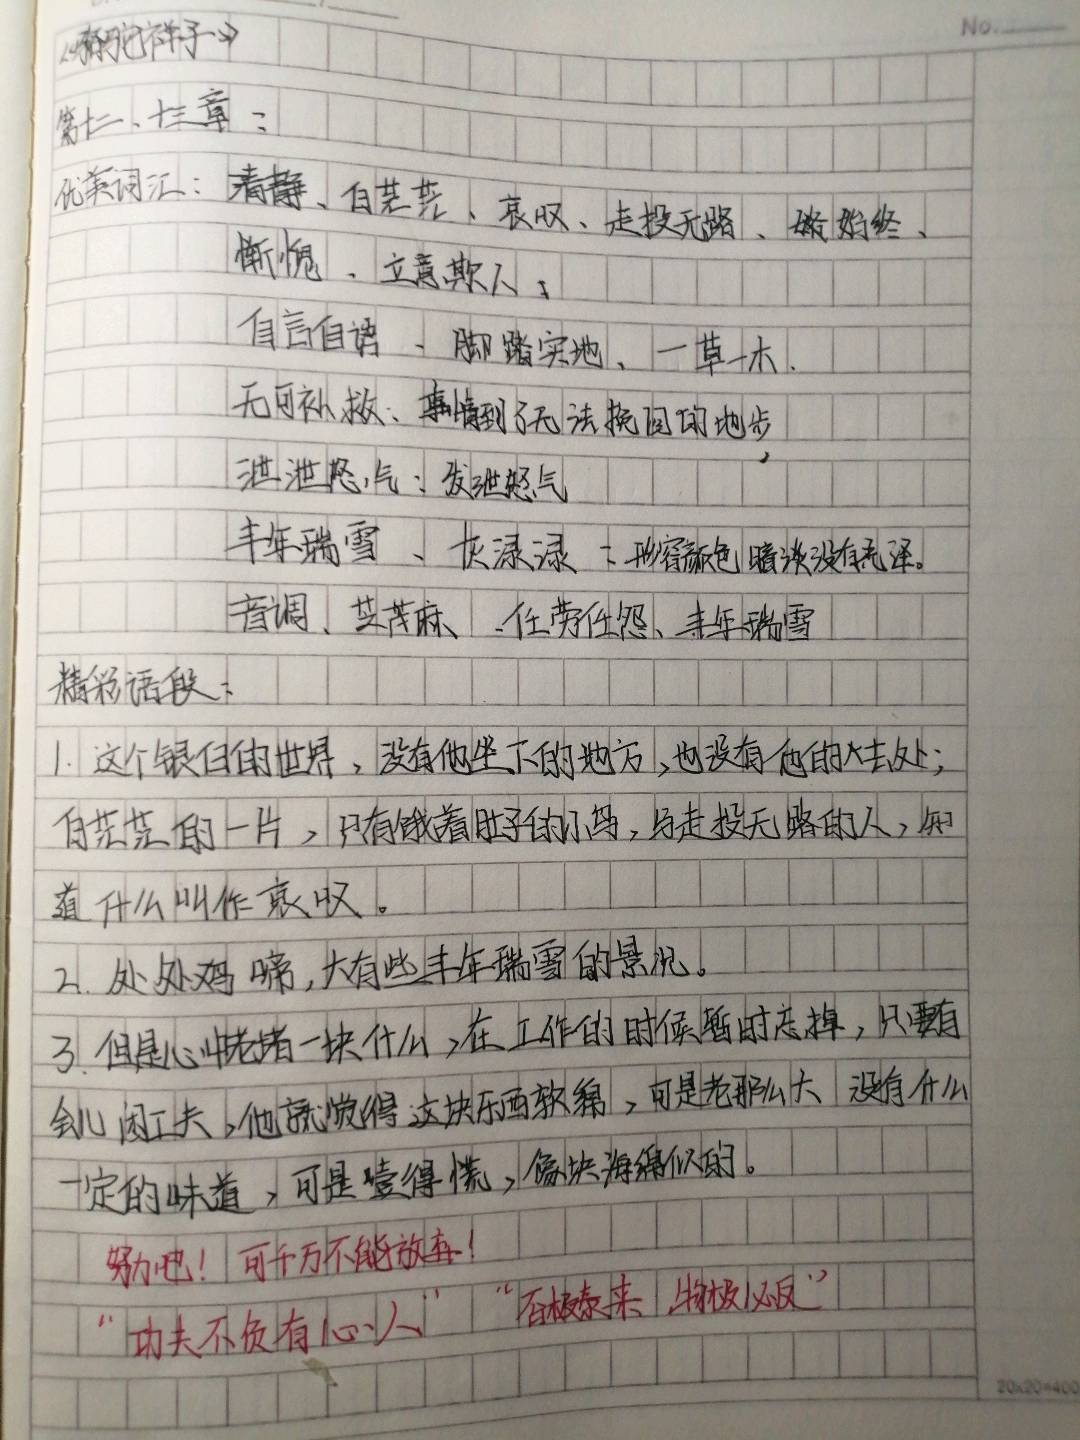 No.
《骆驼祥子》
第十二、十三章：
优美词汇：清静、白茫茫、哀叹、走投无路、始终、
惭愧、立意欺人、
自言自语、脚踏实地、一草一木.
无可补救：事情到了无法挽回的地步，
泄泄怒气：发泄怒气
丰年瑞雪、灰渌渌：形容颜色暗淡没有亮泽。
音调、芝茂麻、任劳任怨、丰年瑞雪
精彩语段：
1. 这个银白的世界，没有他坐下的地方，也没有他的去处；
白茫茫的一片，只有饿着肚子的小鸟，与走投无路的人，知
道什么叫作哀叹。
2. 处处鸡啼，大有些丰年瑞雪的景况。
3. 但是心中老堵一块什么，在工作的时候暂时忘掉，只要有
会儿闲工夫，他就觉得这块东西软绵，可是老那么大 没有什么
一定的味道，可是噎得慌，像块海绵似的。
努力吧！可千万不能放弃！
“功夫不负有心人” “否极泰来 物极必反”
20x20=400